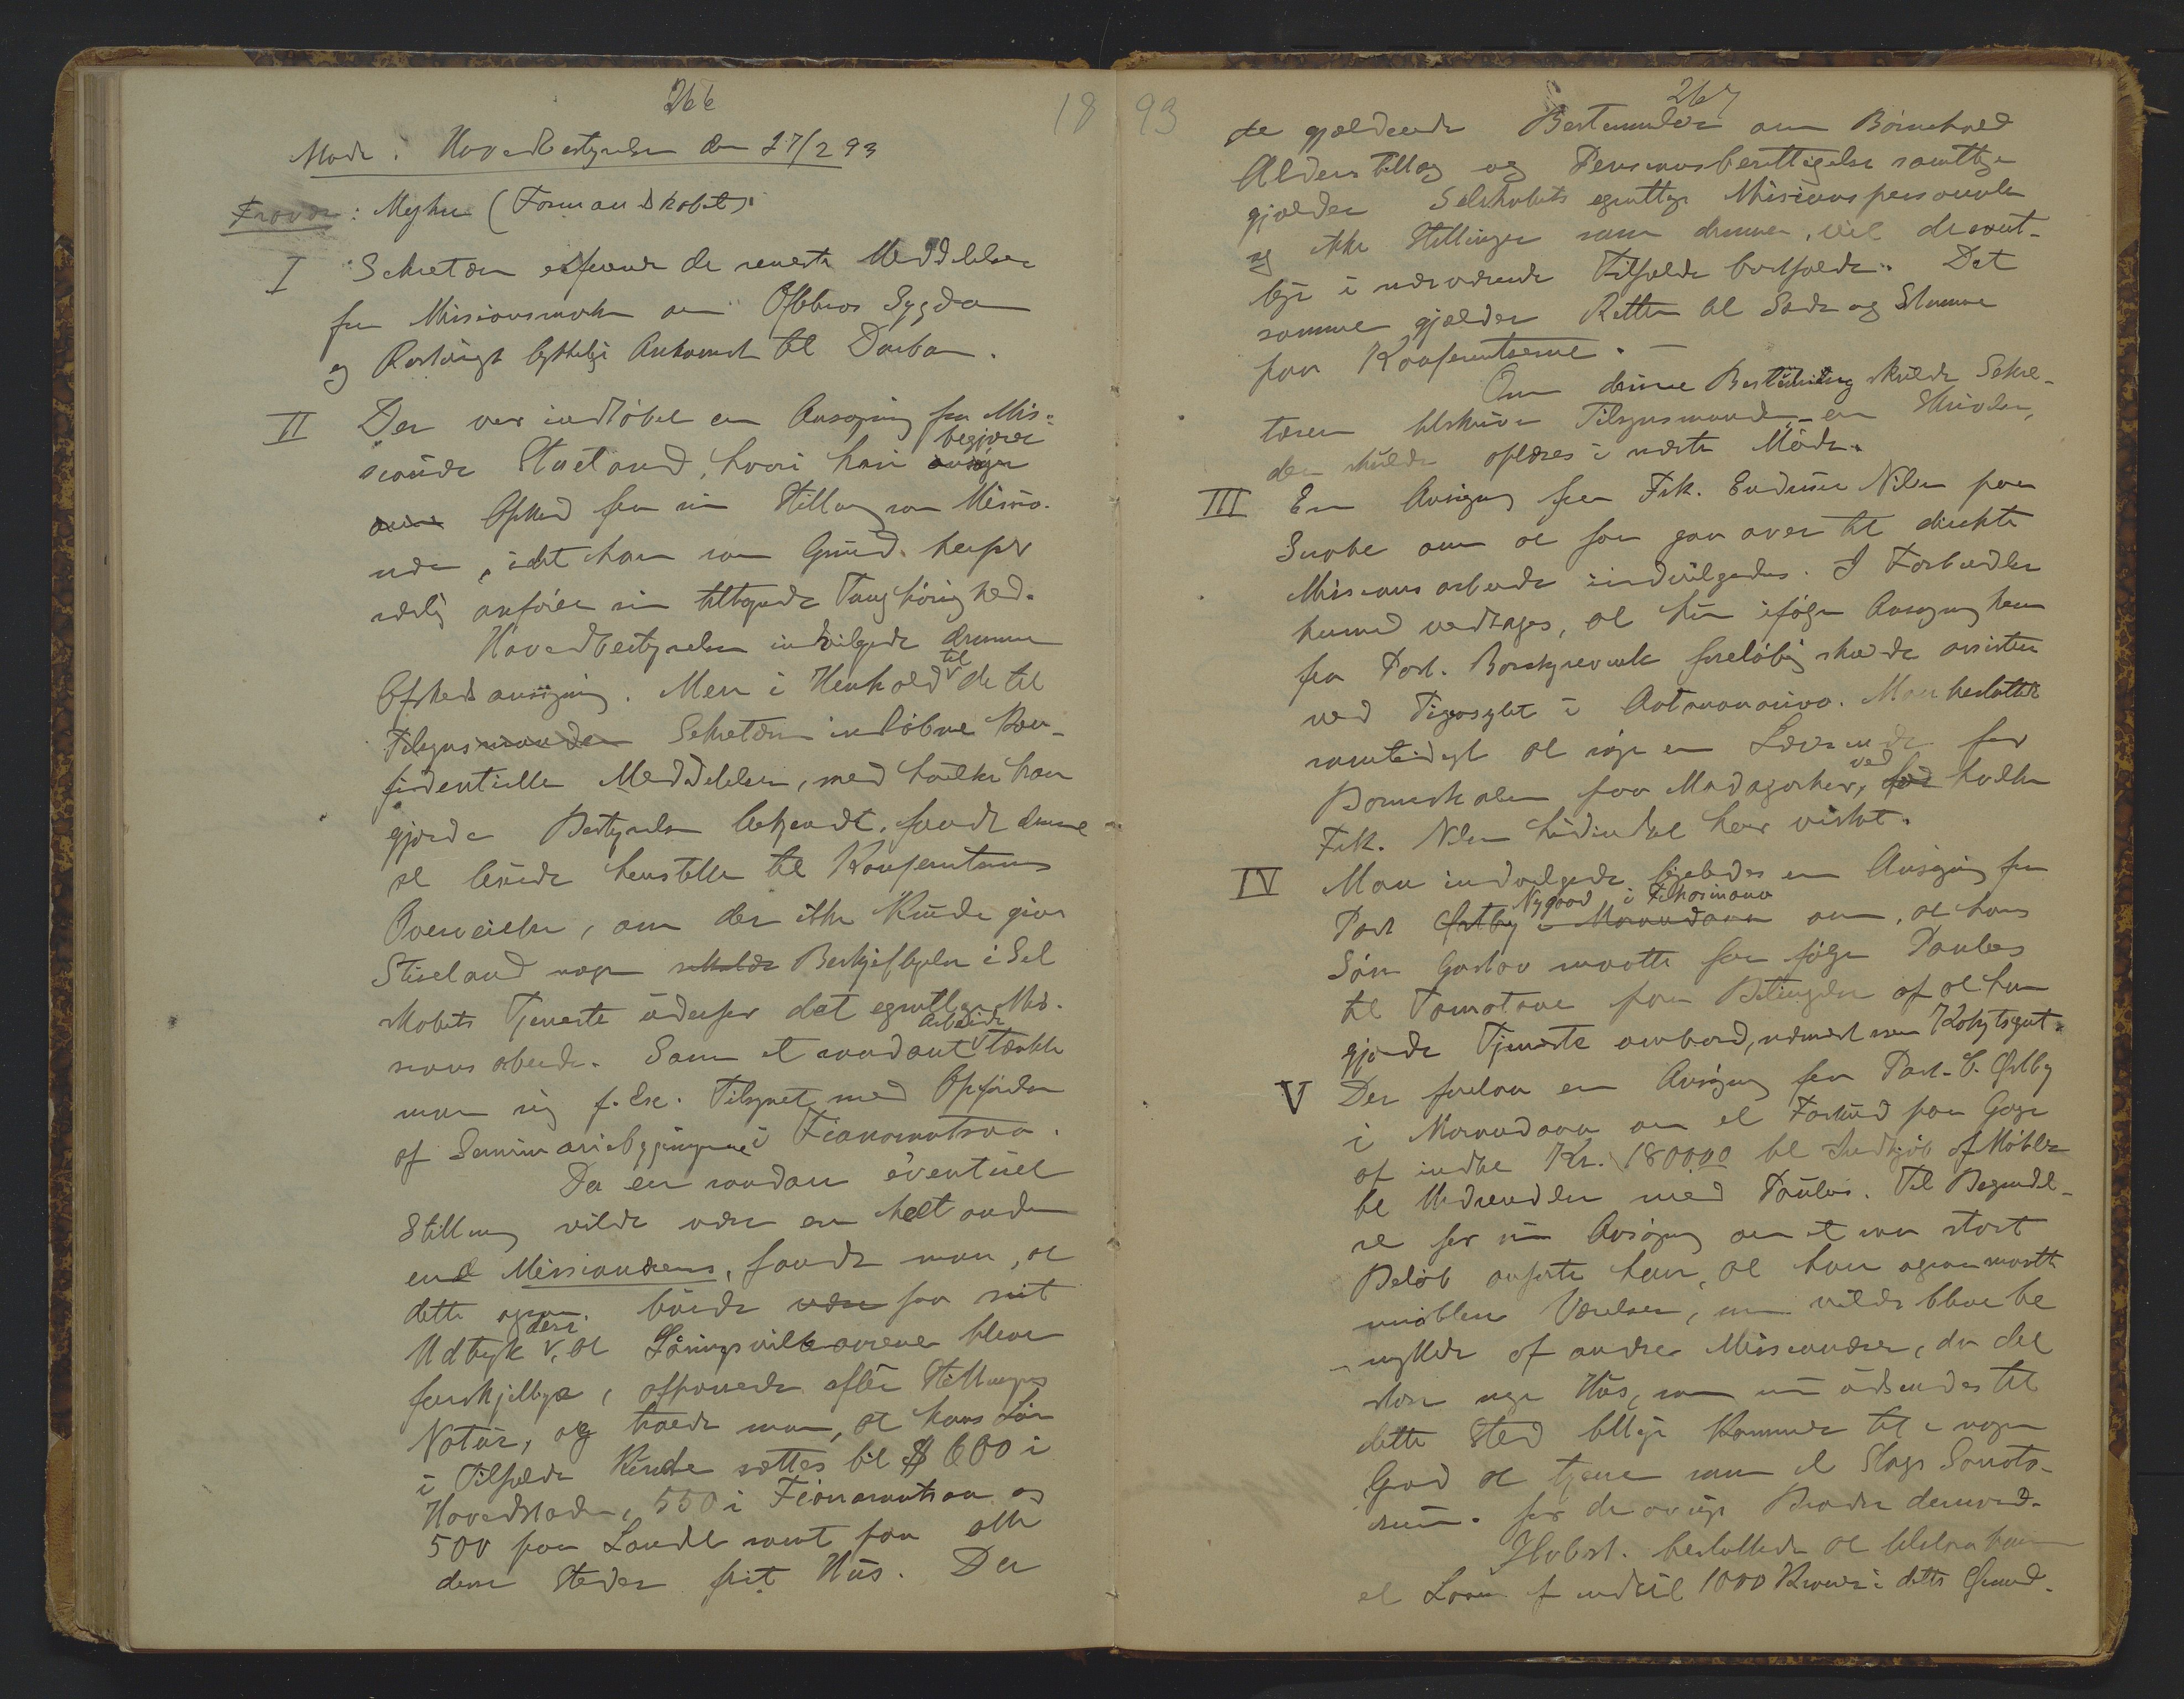 266
18
Møde i Hovedbestyrelsen den 27/2 93
Fravær: Myhre (Formandskabet).
I Sekretæren refererede de seneste Meddelelser
fra Missionsmarken om Oftebros Sygdom
og Rostvigs lykkelige Ankomst til Durban.
II Der var indløbet en Ansøgning fra Mis-
sionær Stueland, hvori han begjærer
Afsked fra sin Stilling som Missio-
nær, idet han som Grund herfor
særlig anfører sin tiltagende Tunghørighed.
Hovedbestyrelsen indvilgede denne
Afskedsansøgning. Men i Henhold til de til
Tilsynsmanden Sekretæren indløbne kon-
fidentielle Meddelelser, med hvilke han
gjorde Bestyrelsen bekjendt, fandt denne
at burde henstille til Konferentsens
Overveielse, om der ikke kunde gives
Stueland nogen Beskjeftigelse i Sel
skabets Tjeneste udenfor det egentlige Mis-
sionsarbeide. Som et saadant Arbeide tænkte
man sig f. Ex. Tilsynet med Opførelsen
af Seminariebygningerne i Fianarantsoa.
Da en saadan eventuel
Stilling vilde være en helt anden
end Missionærens, fandt man, at
dette ogsaa burde faa sit
Udtryk deri, at Lønningsvilkaarene bleve
forskjellige, afpassede efter Stillingens
Natur, og troede man, at hans Løn
i Tilfælde kunde sættes til $ 600 i
Hovedstaden, 550 i Fianarantsoa og
500 paa Landet samt paa alle
disse Steder frit Hus. Da
93
267
de gjældende Bestemmelser om Børnehold
Alderstillæg og Pensionsberettigelse samtlige
gjælder Selskabets egentlige Missionspersonale
og ikke Stillinger som denne, vil de sent-
lige i nærværende Tilfælde bortfalde. Det
samme gjælder Retten til Sæde og Stemme
paa Konferentserne. –
Om denne Beslutning skulde Sekre-
tæren tilskrive Tilsynsmanden en Skrivelse,
der skulde oplæses i næste Møde.
III En Ansøgning fra Frk. Nilsen paa
om at faa gaa over til direkte
Missionsarbeide indvilgedes. I Forbindelse
hermed vedtages, at hun ifølge Ansøgning
fra Past. Borchgrevink foreløbig skulde assistere
ved Pigeasylet i Antananarivo. Man besluttede
samtidigt at søge en Lærerinde for
Børneskolen paa Madagaskar, ved hvilken
Frk. Nilsen hidindtil har virket.
IV Man indvilgede ligeledes en Ansøgning fra
Past Nygaard i Fihasinana om, at hans
Søn Gustav maatte faa følge Paulus
til Tamatave paa Betingelse af at han
gjorde Tjeneste ombord, nærmest som Kahytsgut.
V Der forelaa en Ansøgning fra Past. C. Østby
i Morondava om et Forskud paa Gage
af indtil Kr. 1800.00 til Indkjøb af Møbler
til Medsendelse med Paulus. Til Begrundel-
se for sin Ansøgning om et saa stort
Beløb anførte han, at han ogsaa maatte
møblere Værelser, som vilde blive be
nyttede af andre Missionærer, da det
store nye Hus, som nu udsendes til
dette Sted tillige kommer til i nogen
Grad at tjene som et Slags Sanato-
rium for de øvrige Brødre derinde.
Hvbst. besluttede at tilstaa ham
et Laan af indtil 1000 Kroner i dette Øiemed.